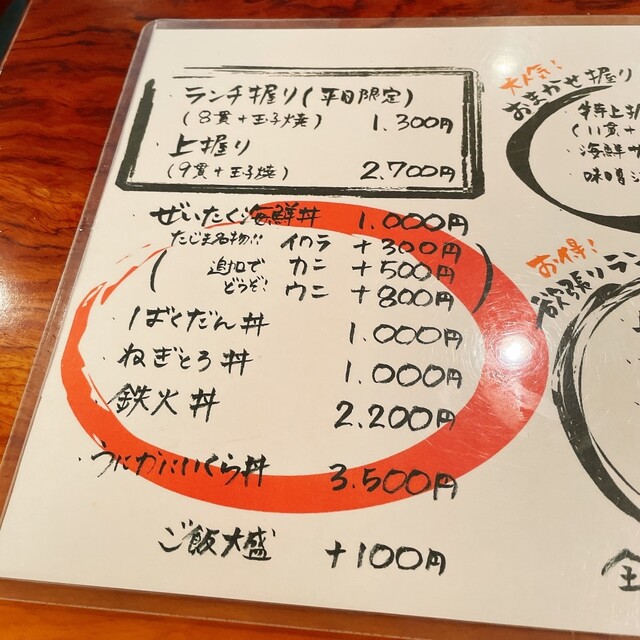 ランチ握り(平日限定)
(8貫+玉子焼) 1.300円
・上握り
(9貫+玉子焼) 2.700円
・ぜいたく海鮮丼 1.000円
たじま名物!! イクラ +300円
(追加で カニ +500円
どうぞ! ウニ +800円)
・ばくだん丼 1.000円
・ねぎとろ丼 1.000円
・鉄火丼 2.200円
・うにかにいくら丼 3.500円
ご飯大盛 +100円
大人気!
おまかせ握り
・特上握
(11貫+
・海鮮サ
・味噌
お得!
欲張りラン